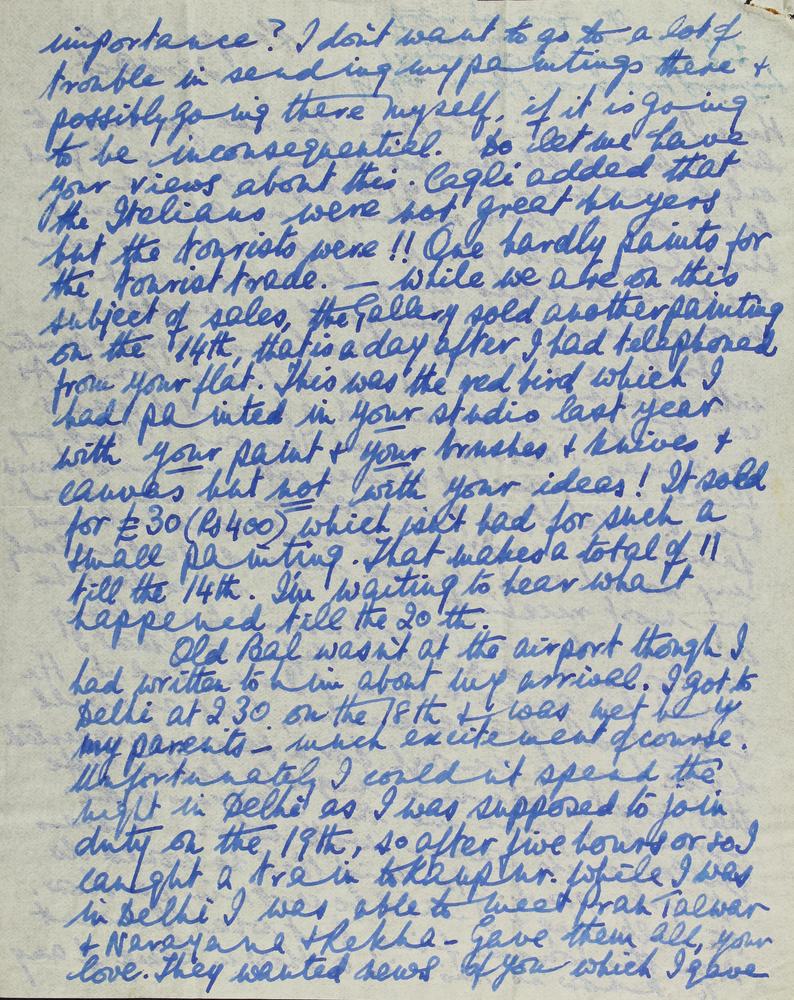 importance? I don't want to go to a lot of
trouble in sending my paintings there +
possibly going there myself, if it is going
to be inconsequential. Do let me have
your views about this. Cagli added that
the Italians were not great buyers
but the tourists were!! One hardly paints for
the tourist trade. — While we are on this
subject of sales, the Gallery sold another painting
on the 14th, that is a day after I had telephoned
from your flat. This was the red bird which I
had painted in your studio last year
with your paint & your brushes & knives &
canvas but not with your ideas! It sold
for £30 (Rs 400) which isn't bad for such a
small painting. That makes a total of 11
till the 14th. I'm waiting to hear what
happened till the 20th.
Old Bal wasn't at the airport though I
had written to him about my arrival. I got to
Delhi at 2.30 on the 18th & was met by
my parents – much excitement of course.
Unfortunately I couldn't spend the
night in Delhi as I was supposed to join
duty on the 19th, so after five hours or so I
caught a train to Kanpur. While I was
in Delhi I was able to meet Pran Talwar
& Narayana & Rekha – Gave them all, your
love. They wanted news of you which I gave